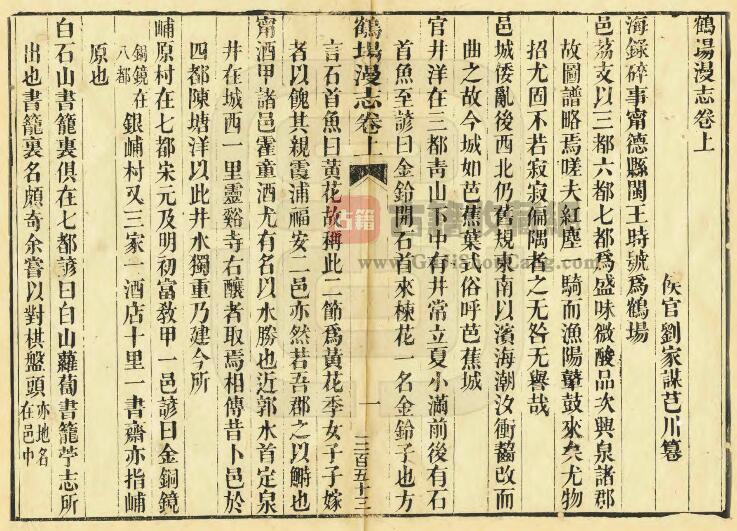 鶴場漫志卷上
侯官劉家謀芑川纂
海錄碎事甯德縣閩王時號爲鶴場
邑荔支以三都六都七都爲盛味微酸品次興泉諸郡
故圖譜略焉嗟夫紅塵一騎而漁陽鼙鼓來矣尤物
招尤固不若寂寂偏隅者之无咎无譽哉
邑城倭亂後西北仍舊規東南以濱海潮汐衝齧改而
曲之故今城如芭蕉葉 俗呼芭蕉城
官井洋在三都靑山下中有井常立夏小滿前後有石
首魚至諺曰金鈴開石首來楝花一名金鈴子也方
言石首魚曰黃花故稱此二節爲黃花季女子子嫁
者以餽其親霞浦福安二邑亦然若吾郡之以鰣也
甯酒甲諸邑霍童酒尤有名以水勝也近郭水首定泉
井在城西一里靈谿寺右釀者取焉相傳昔卜邑於
四都陳塘洋以此井水獨重乃建今所
峬原村在七都宋元及明初富敎甲一邑諺曰金銅鏡
銅鏡在八都銀峬村又三家一酒店十里一書齋亦指峬
原也
白石山書籠裏俱在七都諺曰白山蘿蔔書籠苧志所
出也書籠裏名頗奇余嘗以對棋盤頭亦地名在邑中
鶴場漫志卷上
一
三百五十三
古籍
www.GujiShouCang.com